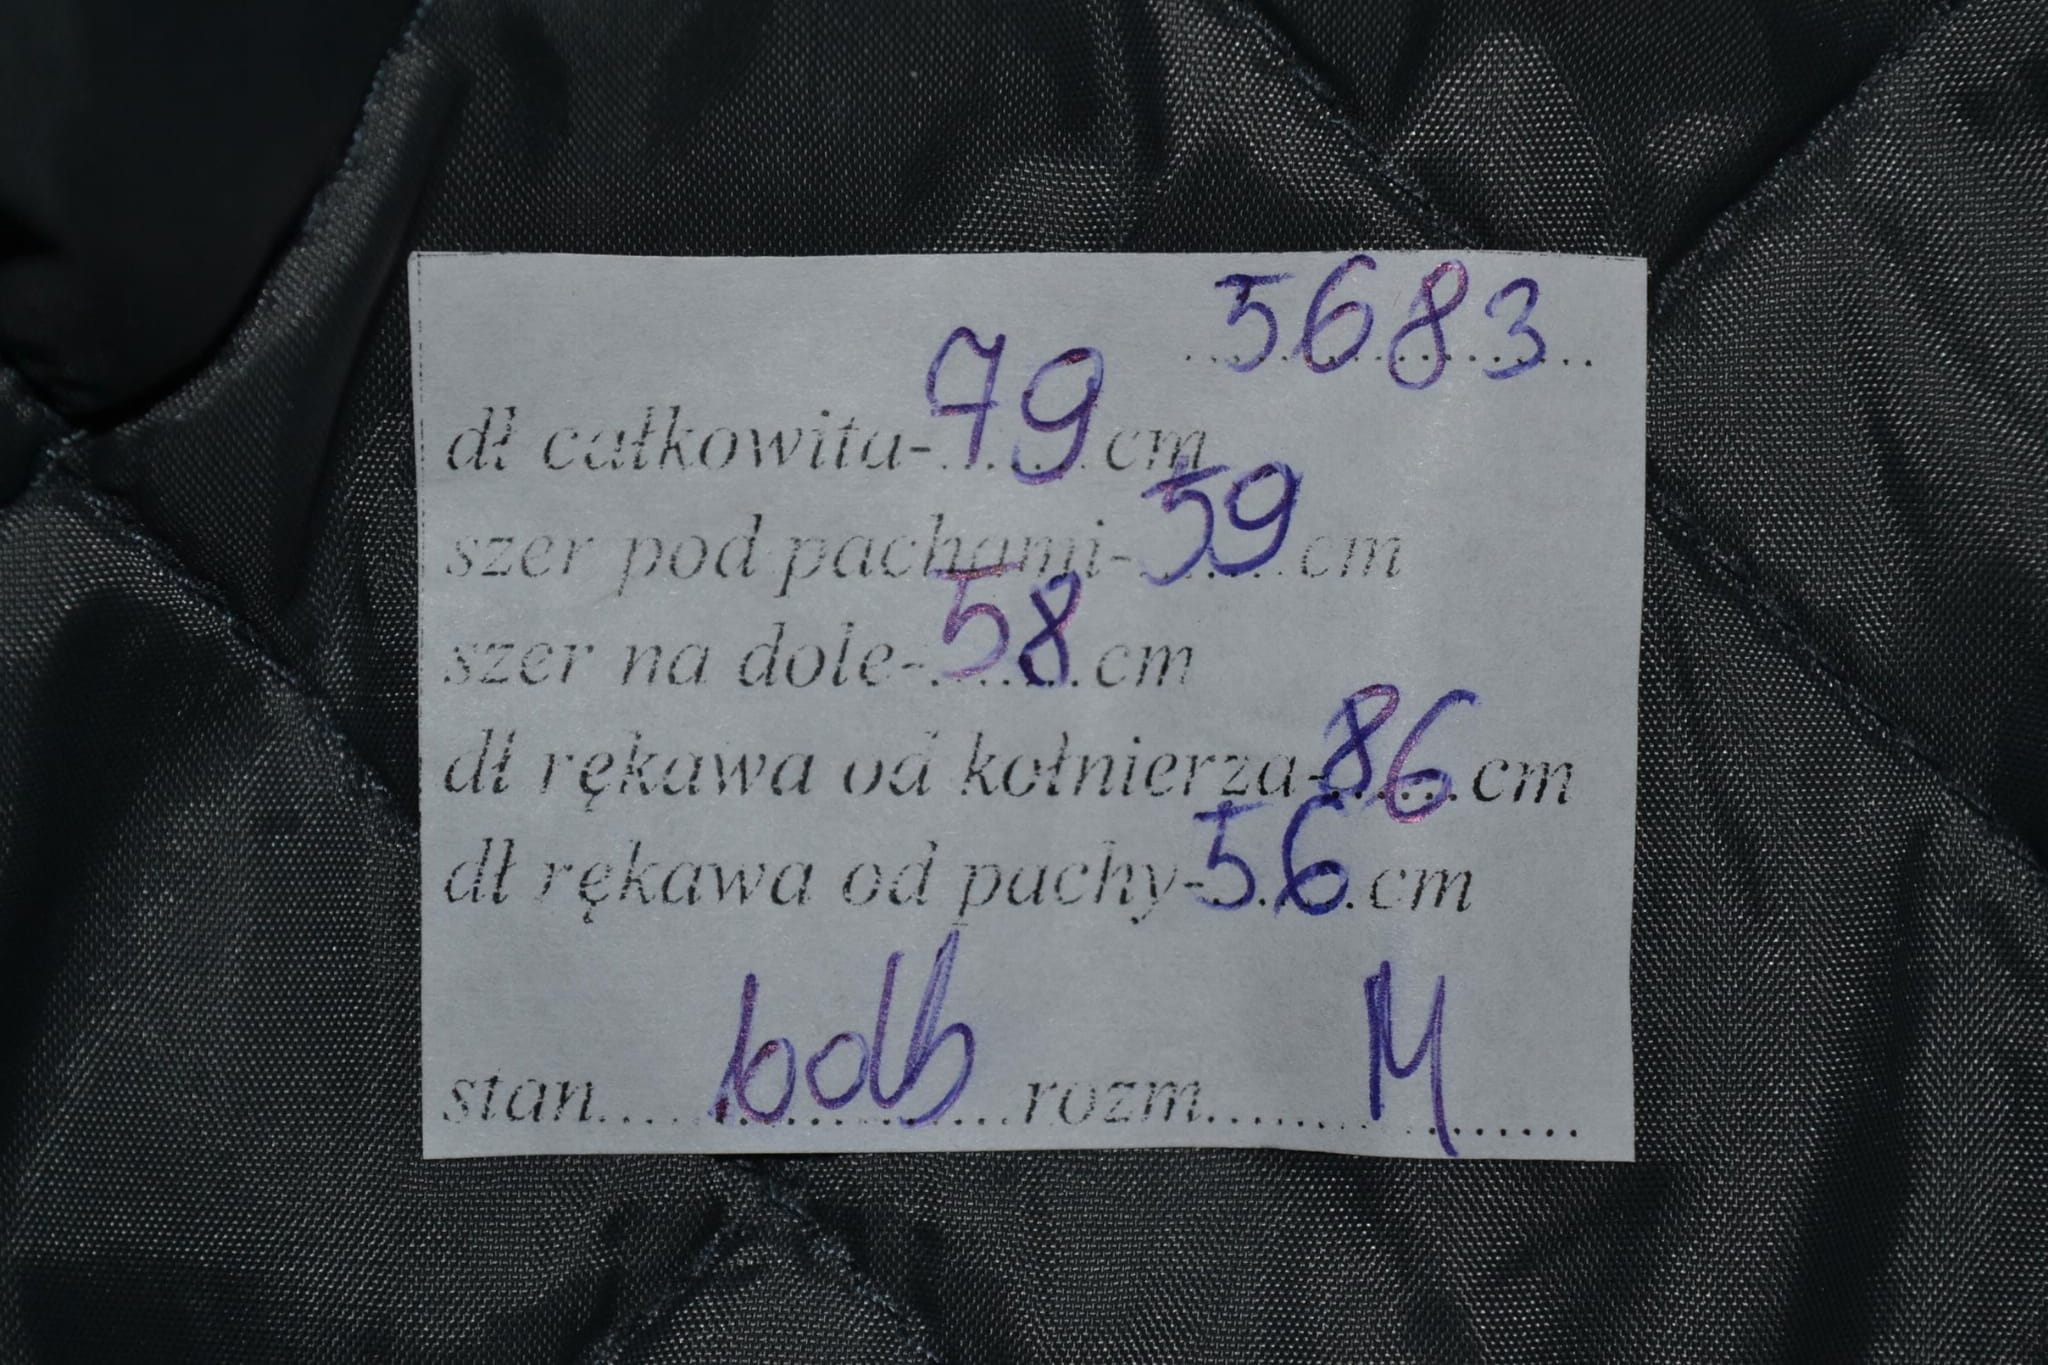 5683
dł całkowita-79cm
szer pod pachami-59cm
szer na dole-58cm
dł rękawa od kołnierza-86cm
dł rękawa od pachy-56cm
stan....bdb....rozm....M....